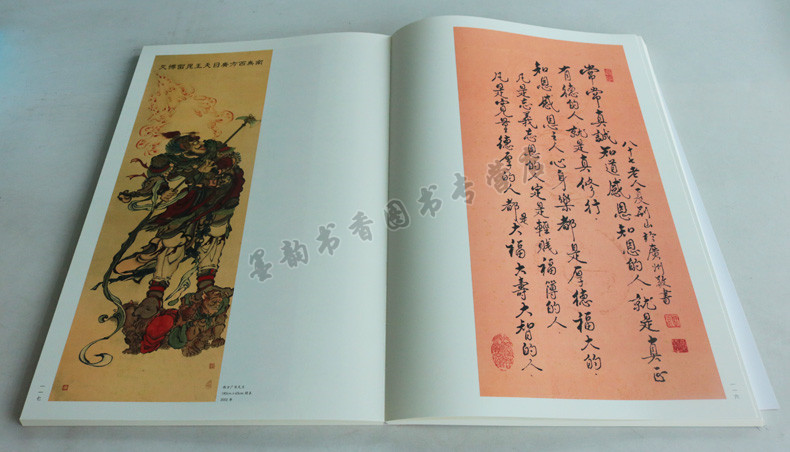 常常真誠知道感恩知恩的人.就是真正
有德的人就是真修行.
知恩感恩主人心身樂都是厚德福大的.
凡是忘義忘恩的人定是輕賤福簿的人.
凡是寬量德厚的人都是大福大壽大智的人.
八十七老人夏荆山於廣州敬書
一一六
南無西方廣目天王毘留博叉
一一七
墨韵书香图书专营店